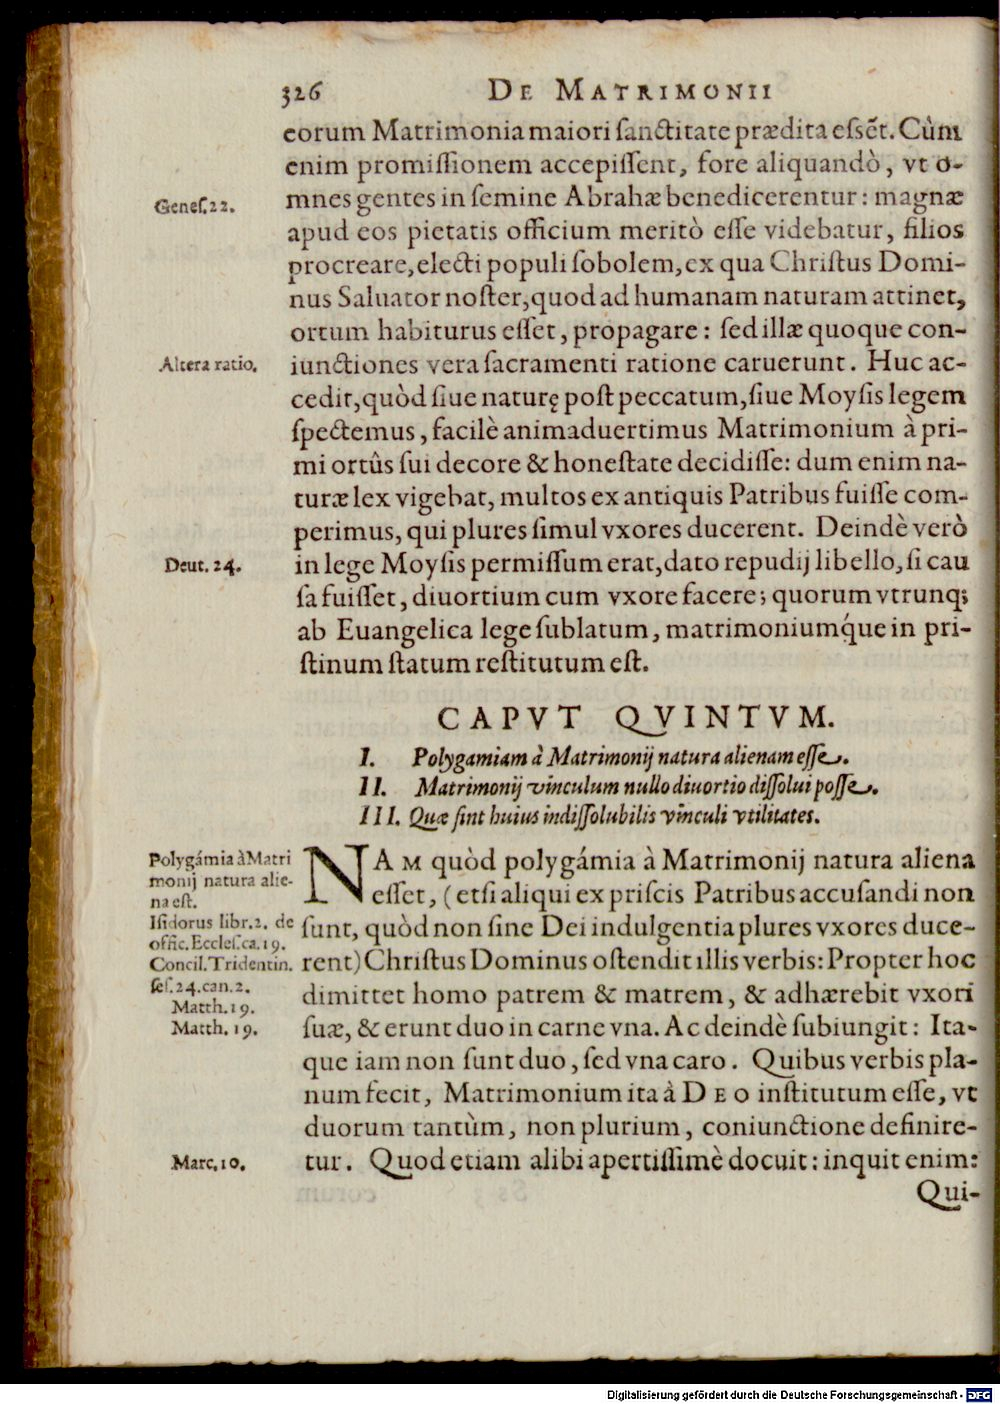 326 DE MATRIMONII
eorum Matrimonia maiori ſanctitate prædita eſsẽt. Cùm
enim promiſſionem accepiſſent, fore aliquandò, vt o-
Geneſ.22.
mnes gentes in ſemine Abrahæ benedicerentur: magnæ
apud eos pietatis officium meritò eſſe videbatur, filios
procreare, electi populi ſobolem, ex qua Chriſtus Domi-
nus Saluator noſter, quod ad humanam naturam attinet,
ortum habiturus eſſet, propagare: ſed illæ quoque con-
Altera ratio.
iunctiones vera ſacramenti ratione caruerunt. Huc ac-
cedit, quòd ſiue naturę poſt peccatum, ſiue Moyſis legem
ſpectemus, facilè animaduertimus Matrimonium à pri-
mi ortûs ſui decore & honeſtate decidiſſe: dum enim na-
turæ lex vigebat, multos ex antiquis Patribus fuiſſe com-
perimus, qui plures ſimul vxores ducerent. Deindè verò
Deut. 24.
in lege Moyſis permiſſum erat, dato repudij libello, ſi cau
ſa fuiſſet, diuortium cum vxore facere; quorum vtrunq;
ab Euangelica lege ſublatum, matrimoniumq́ue in pri-
ſtinum ſtatum reſtitutum eſt.
CAPVT QVINTVM.
I. Polygamiam à Matrimonij natura alienam eſſe.
II. Matrimonij vinculum nullo diuortio diſſolui poſſe.
III. Quæ ſint huius indiſſolubilis vinculi vtilitates.
Polygámia à Matri
monij natura alie-
na eſt.
Iſidorus libr.2. de
offic. Eccleſ. ca.19.
Concil. Tridentin.
ſeſ.24.can.2.
Matth.19.
Matth. 19.
NAM quòd polygámia à Matrimonij natura aliena
eſſet, (etſi aliqui ex priſcis Patribus accuſandi non
ſunt, quòd non ſine Dei indulgentia plures vxores duce-
rent) Chriſtus Dominus oſtendit illis verbis: Propter hoc
dimittet homo patrem & matrem, & adhærebit vxori
ſuæ, & erunt duo in carne vna. Ac deindè ſubiungit: Ita-
que iam non ſunt duo, ſed vna caro. Quibus verbis pla-
num fecit, Matrimonium ita à DEO inſtitutum eſſe, vt
duorum tantùm, non plurium, coniunctione definire-
Marc.10.
tur. Quod etiam alibi apertiſſimè docuit: inquit enim:
Qui-
Digitalisierung gefördert durch die Deutsche Forschungsgemeinschaft - DFG